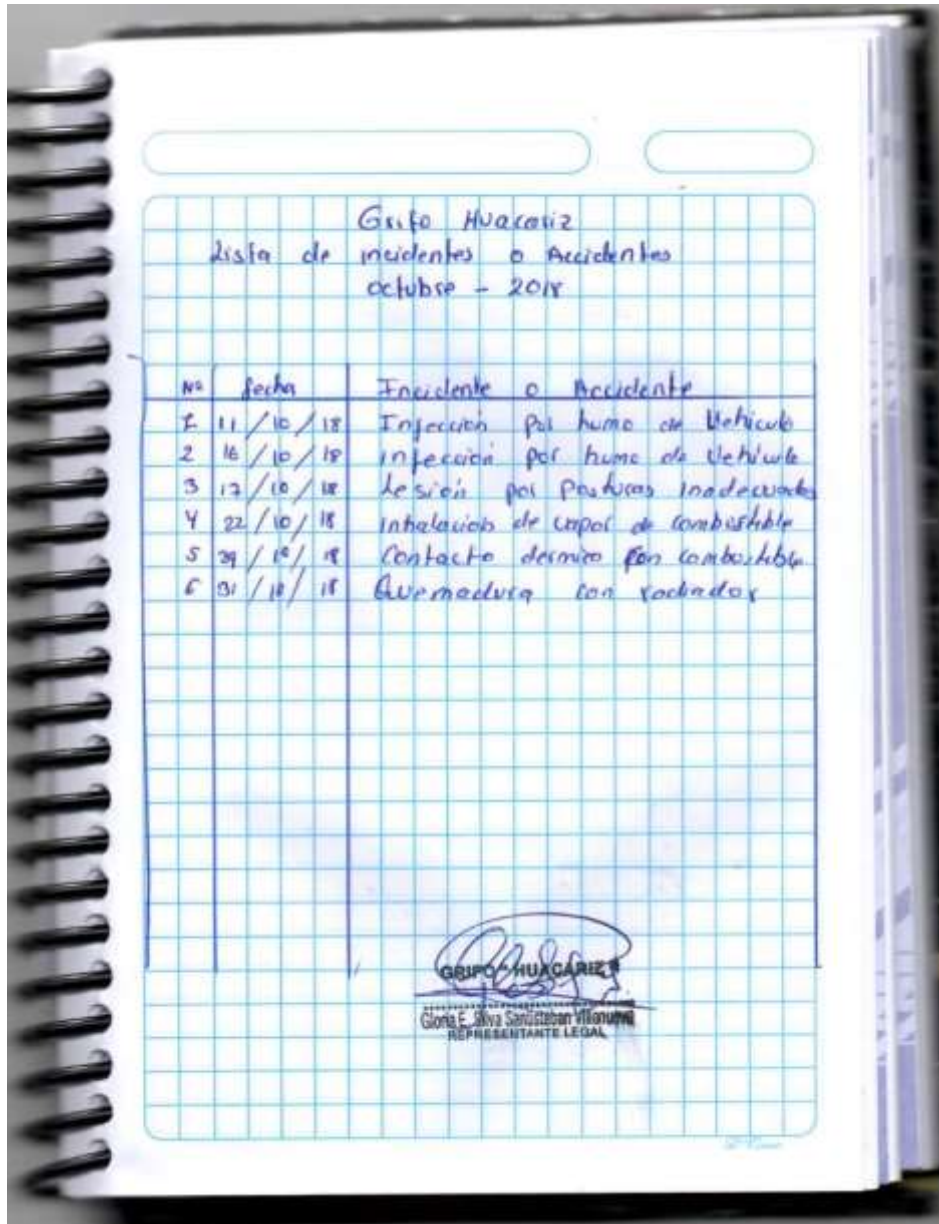 Grifo Huacariz
Lista de incidentes o Accidentes
octubre - 2018
Nº fecha Incidente o Accidente
1 11/10/18 Infección por humo de Vehiculo
2 16/10/18 infección por humo de Vehiculo
3 17/10/18 Lesión por Posturas inadecuadas
4 22/10/18 inhalacion de vapor de combustible
5 29/10/18 Contacto dermico con combustible
6 31/10/18 Quemadura con radiador
GRIFO "HUACARIZ"
Gloria E. Silva Santisteban Villanueva
REPRESENTANTE LEGAL